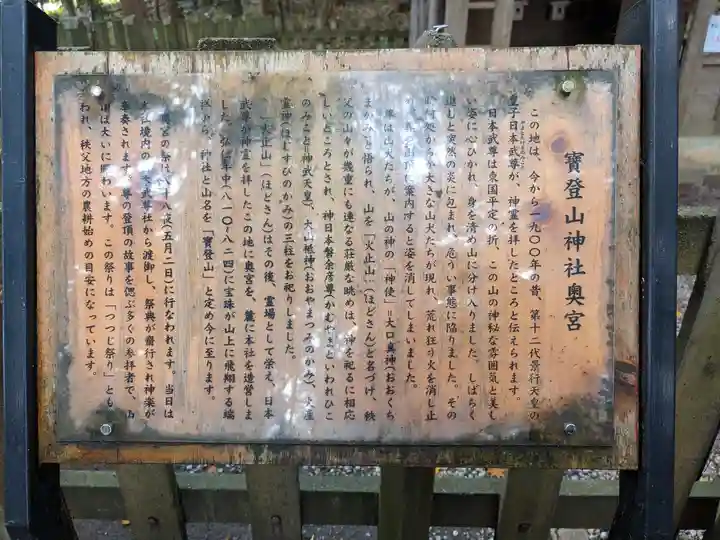 寶登山神社奥宮
この地は、今から一九〇〇年の昔、第十二代景行天皇の
皇子日本武尊が、神霊を拝したところと伝えられます。
やまとたけるのみこと
日本武尊は東国平定の折、この山の神秘な雰囲気と美し
い姿に心ひかれ、身を清め山に分け入りました。しばらく
進むと突然の炎に包まれ、危うい事態に陥りました。その
時何処からか大きな山犬たちが現れ、荒れ狂う火を消し止
め、
案内すると姿を消してしまいました。
尊は山犬たちが、山の神の「神使」=大口真神(おおくち
まかみ)と悟られ、山を「火止山」(ほどさん)と名づけ、秩
父の山々が幾重にも連なる荘厳な眺めは、神を祀るに相応
しいところとされ、神日本磐余彦尊(かむやまといわれひこ
のみこと=神武天皇)、大山祇神(おおやまつみのかみ)、火産
霊神(ほむすびのかみ)の三柱をお祀りしました。
「火止山」(ほどさん)はその後、霊場として栄え、日本
武尊が神霊を拝したこの地に奥宮を、麓に本社を造営しま
した。弘仁年中(八一〇~八二四)に宝珠が山上に飛翔する瑞
祥から、神社と山名を「寶登山」と定め今に至ります。
奥宮の祭は八十八夜(五月二日)に行なわれます。当日は
本社境内の日本武尊社から渡御し、祭典が齋行され神楽が
奉奏されます。尊の登頂の故事を偲ぶ多くの参拝者で、お
山は大いに賑わいます。この祭りは「つつじ祭り」とも
いわれ、秩父地方の農耕始めの目安になっています。